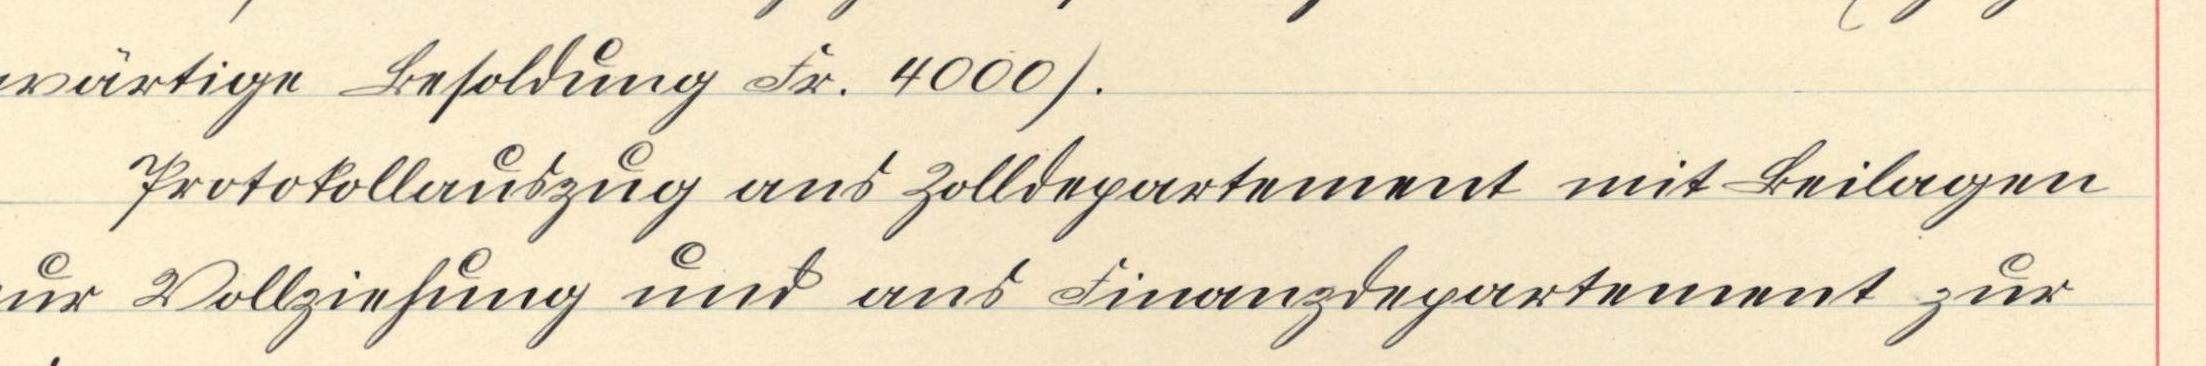 wärtige Besoldung Fr. 4000).
Protokollauszug ans Zolldepartement mit Beilagen
zur Vollziehung und ans Finanzdepartement zur